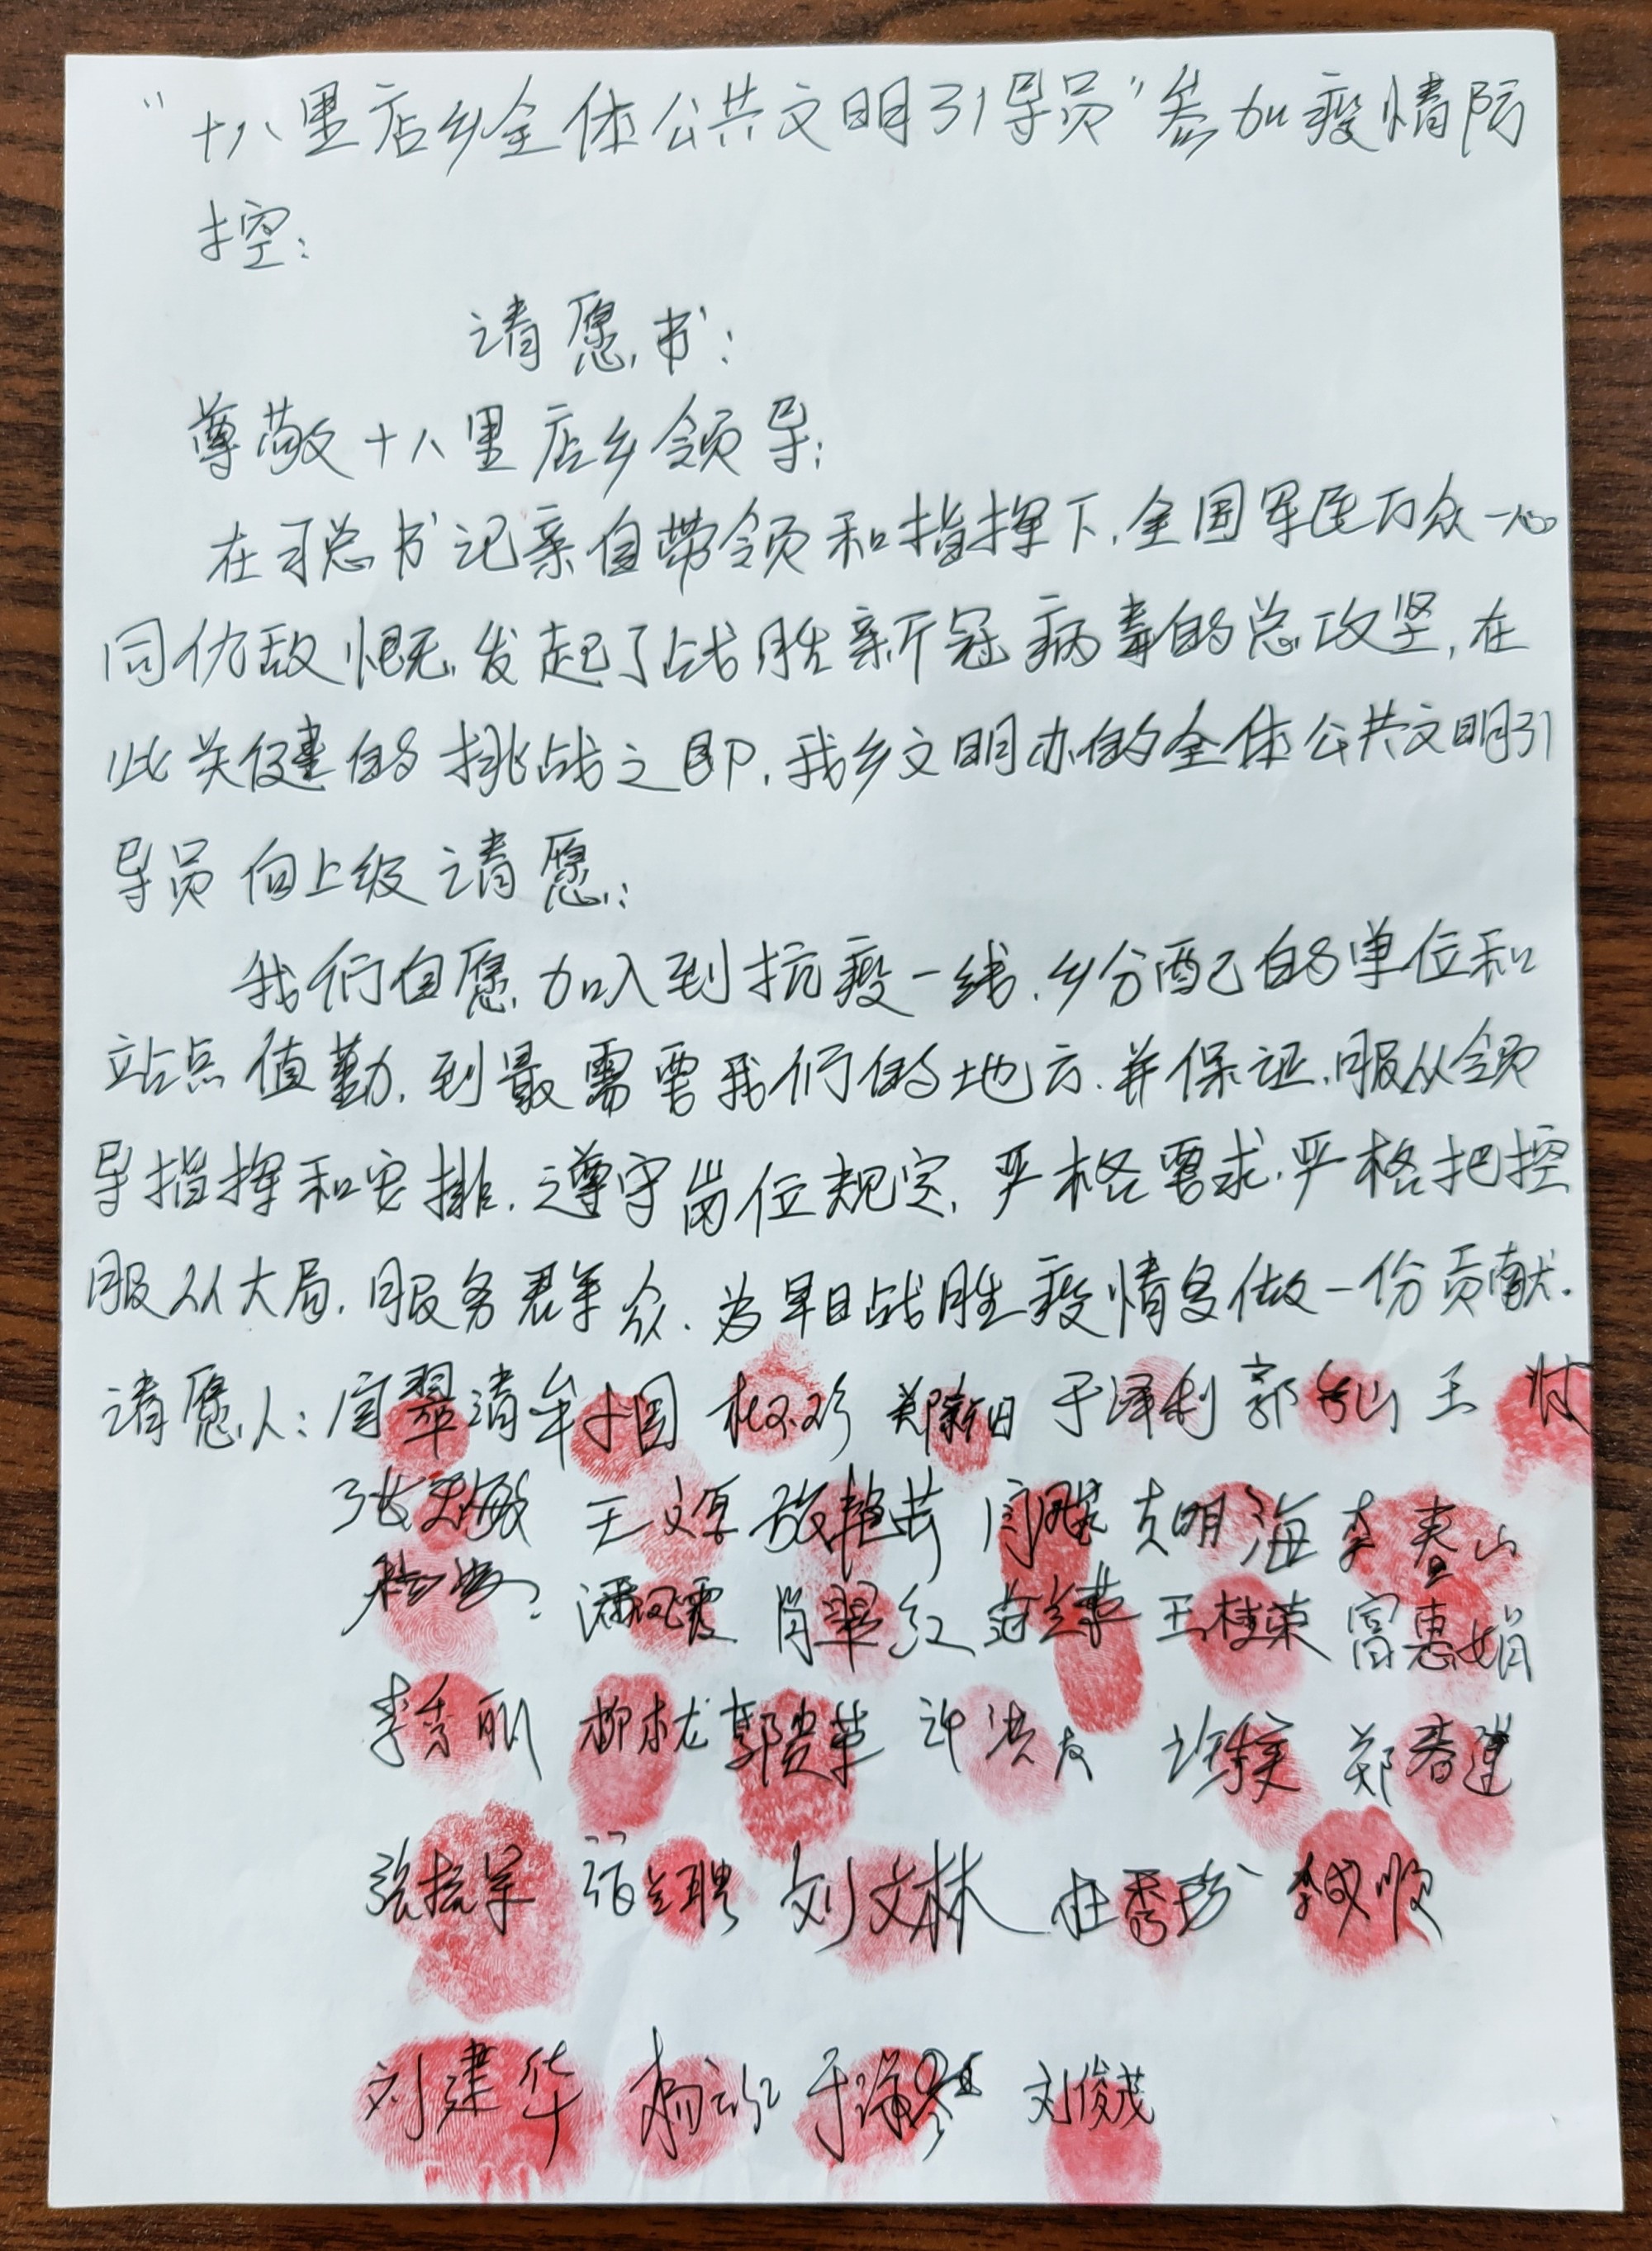 “十八里店乡全体公共文明引导员”参加疫情防
控：
请愿书：
尊敬十八里店乡领导：
在习总书记亲自带领和指挥下，全国军民万众一心
同仇敌慨，发起了战胜新冠病毒的总攻坚，在
此关健的挑战之即，我乡文明办的全体公共文明引
导员向上级请愿：
我们自愿加入到抗疫一线，乡分配已的单位和
站点值勤，到最需要我们的地方，并保证，服从领
导指挥和安排，遵守岗位规定，严格要求，严格把控
服从大局，服务群众，为早日战胜疫情多做一份贡献．
请愿人：翠清 于泽利 郭山 王
张敏 王文 明海 李春山
潘凤霞 肖翠红 王桂荣 富惠娟
李秀丽 柳 郭贵荣 许洪友 郑春莲
张振军 刘文林 杜秀珍 李成顺
刘建华 杨 于 刘俊茂